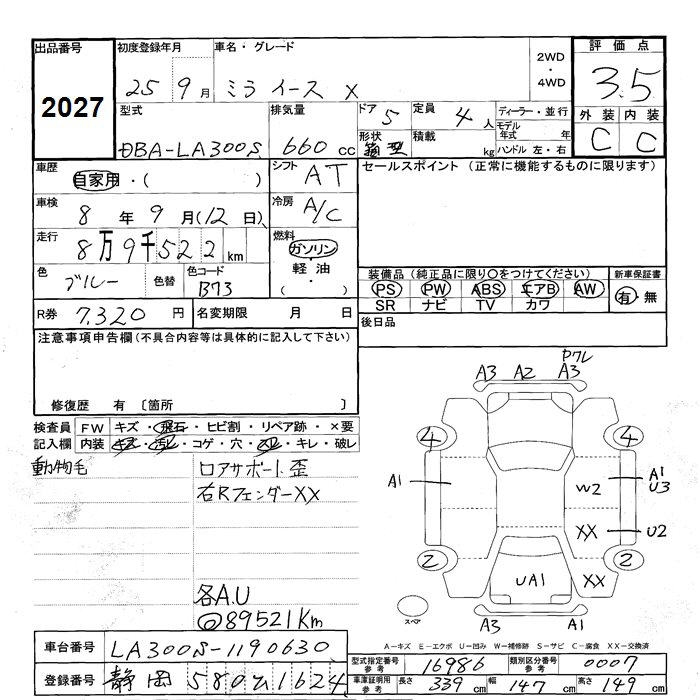 出品番号 2027
初度登録年月 25 9月
車名・グレード ミライース X
2WD・4WD
評価点 3.5
外装 C 内装 C
型式 DBA-LA300S
排気量 660cc
ドア 5
形状 箱型
定員 4人
積載 kg
ディーラー・並行
モデル年式 年
ハンドル 左・右
車歴 自家用・( )
シフト AT
セールスポイント (正常に機能するものに限ります)
車検 8年9月(12日)
冷房 A/C
走行 8万9千522km
燃料 ガソリン・軽油・( )
色 ブルー 色替
色コード B73
装備品 (純正品に限り○をつけてください) 新車保証書
PS PW ABS エアB AW 有・無
SR ナビ TV カワ
R券 7,320円 名変期限 月 日
後日品
注意事項申告欄 (不具合内容等は具体的に記入して下さい)
修復歴 有 〔箇所 〕
検査員記入欄 FW キズ・飛石・ヒビ割・リペア跡・×要
内装 キズ・汚レ・コゲ・穴・スレ・キレ・破レ
動物毛
ロアサポート歪
右RフェンダーXX
各A.U
89521Km
ヤクレ
A3 A2 A3
4 4
A1 W2 A1 U3
XX U2
2 2
UA1 XX
スペア
A3 A1
A-キズ E-エクボ U-凹み W-補修跡 S-サビ C-腐食 XX-交換済
車台番号 LA300S-1190630
型式指定番号 参考 16986 類別区分番号 参考 0007
登録番号 静岡 580 1624
車庫証明用 参考 長さ 339cm 幅 147cm 高さ 149cm